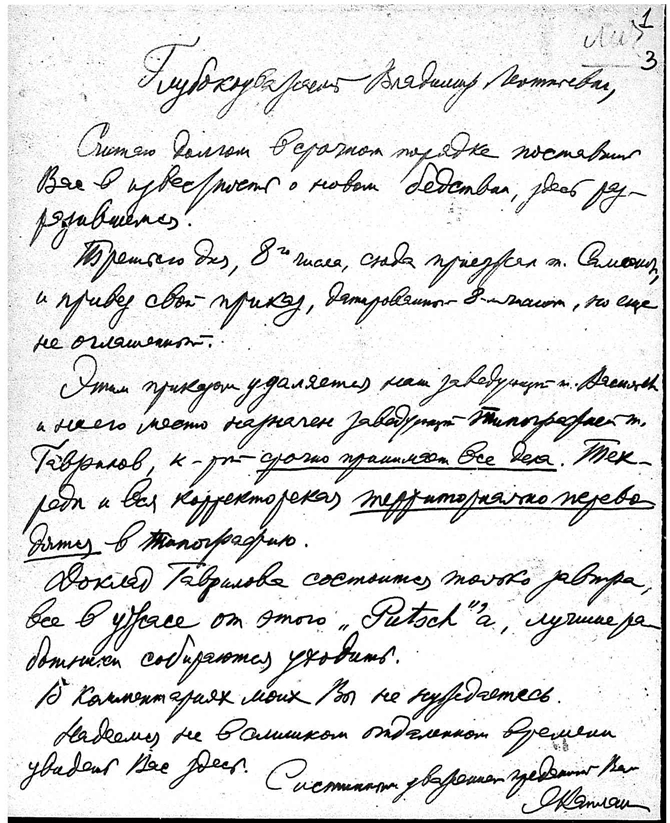 1
3
Глубокоуважаемый Владимир Леонтьевич,
Считаю долгом в срочном порядке поставить
Вас в известность о новом бедствии, здесь раз-
разившемся.
Третьего дня, 8го числа, сюда приезжал т.
и привез свой приказ, датированный 8-м числом, но еще
не оглашенный.
Этим приказом удаляется наш заведующий т.
и на его место назначен заведующий типографией т.
Гаврилов, к-рый срочно принимает все дела. Тех-
реды и вся корректорская территориально перево-
дятся в типографию.
Доклад Гаврилова состоится только завтра,
все в ужасе от этого „Putsch"'а, лучшие ра-
ботники собираются уходить.
В комментариях моих Вы не нуждаетесь.
Надеемся не в слишком отдаленном времени
увидеть Вас здесь.
С истинным уважением преданный Вам
ЯКаплан